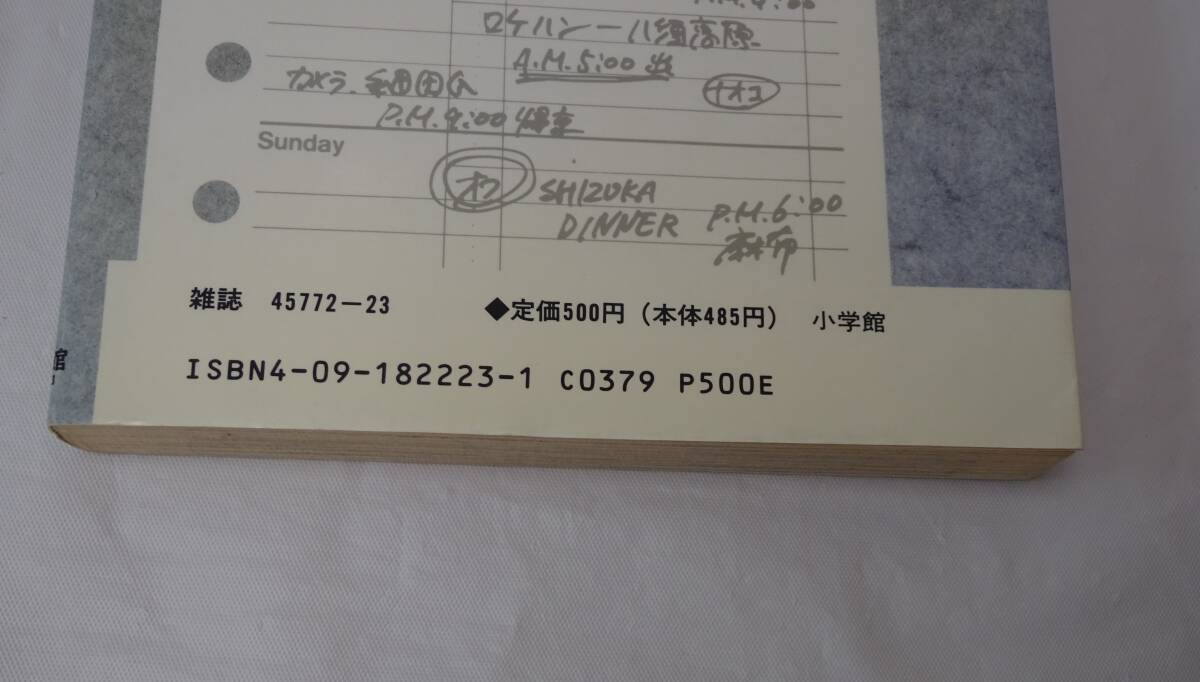 ロケハン一八須高原
A.M.5:00出
カメラ.
ナオコ
P.M.9:00帰宅
Sunday
オフ SHIZUKA
DINNER P.M.6:00
麻布
雑誌 45772-23 ◆定価500円(本体485円) 小学館
館
ISBN4-09-182223-1 C0379 P500E